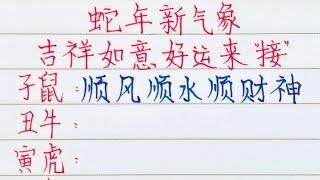 蛇年新气象
吉祥如意好运来"接"
子鼠：顺风顺水顺财神
丑牛：
寅虎：